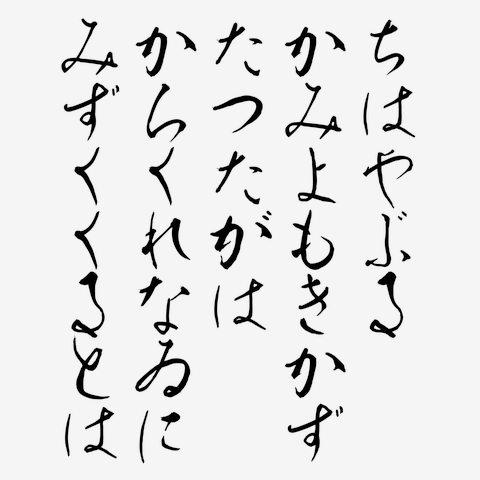 ちはやぶる
かみよもきかず
たつたがは
からくれなゐに
みずくくるとは